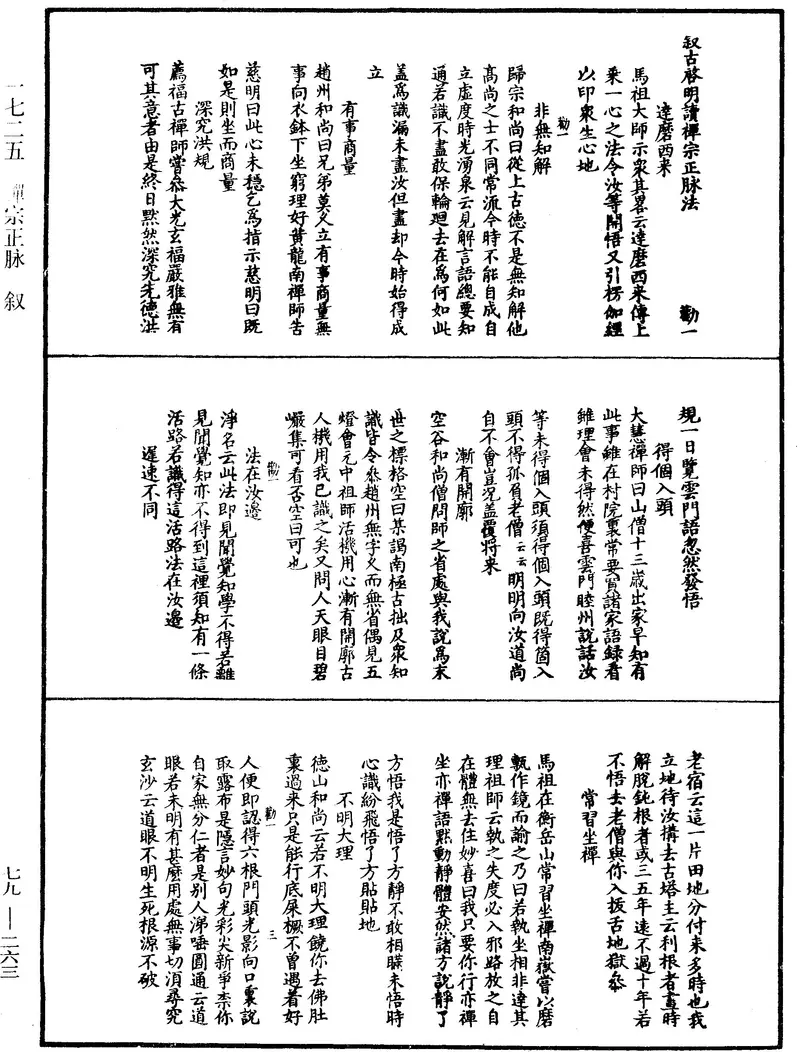 叙古啓明讀禪宗正脉法　勸一
達磨西来
馬祖大師示衆其畧云達磨西来傳上
乗一心之法令汝等開悟又引楞伽經
以印衆生心地
非無知解
勸一
歸宗和尚曰從上古德不是無知解他
髙尚之士不同常派今時不能自成自
立虚度時光湧泉云見解言語總要知
通若識不盡敢保輪廻去在為何如此
盖為識漏未盡汝但盡却今時始得成
立
有事商量
趙州和尚曰兄弟莫久立有事商量無
事向衣鉢下坐窮理好黄龍南禪師告
慈明曰此心未穏乞為指示慈明曰既
如是則坐而商量
深究洪規
薦福古禪師嘗叅大光玄福嚴雅無有
可其意者由是終日黙然深究先德洪
規一日覽雲門語忽然發悟
得個入頭
大慧禪師曰山僧十三歳出家早知有
此事雖在村院裏常要買諸家語録看
雖理會未得然便喜雲門睦州說話汝
等未得個入頭須得個入頭既得箇入
頭不得孤負老僧云云明明向汝道尚
自不會豈況盖覆將来
漸有開廓
空谷和尚僧問師之省處與我說為末
世之標格空曰某謁南極古拙及衆知
識皆令叅趙州無字久而無省偶見五
燈會元中祖師活機用心漸有開廓古
人機用我已識之矣又問人天眼目碧
巖集可看否空曰可也
法在汝邊
勸一
淨名云此法即見聞覺知學不得若離
見聞覺知亦不得到這裡須知有一條
活路若識得這活路法在汝邊
遲速不同
老宿云這一片田地分付来多時也我
立地待汝搆去古塔主云利根者晝時
解脫鈍根者或三五年遠不過十年若
不悟去老僧與你入拔舌地獄叅
常習坐禪
馬祖在衡岳山常習坐禪南嶽嘗以磨
甎作鏡而諭之乃曰若執坐相非達其
理祖師云執之失度必入邪路放之自
在體無去住妙喜曰我只要你行亦禪
坐亦禪語黙動靜體安然諸方說靜了
方悟我是悟了方靜不敢相瞞未悟時
心識紛飛悟了方貼貼地
不明大理
德山和尚云若不明大理饒你去佛肚
裏過来只是能行底屎橛不曾遇着好
勸一　三
人便即認得六根門頭光影向口裏說
取露布是隱言妙句光彩尖新爭柰你
自家無分仁者是別人涕唾圓通云道
眼若未明有甚麽用處無事切須尋究
玄沙云道眼不明生死根源不破
一七二五　禪宗正脉　叙
七九——二六三